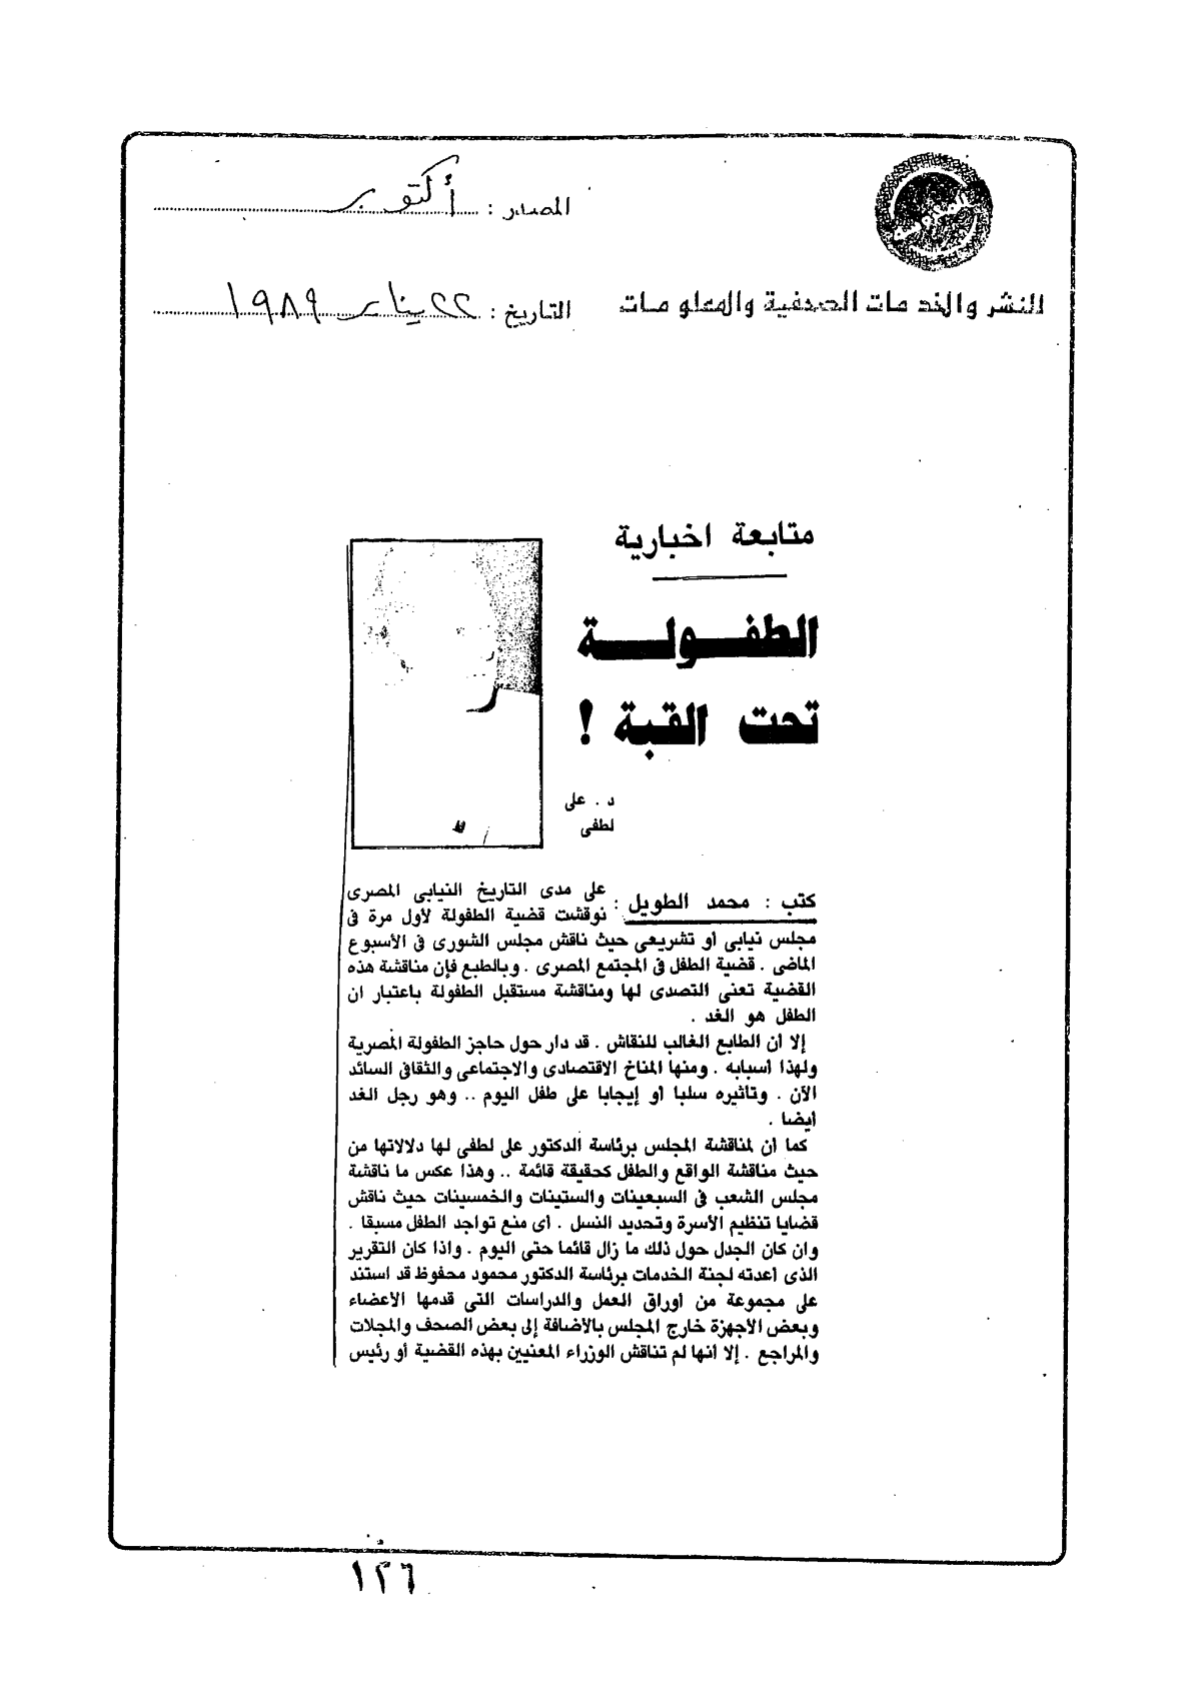 المصدر : أكتوبر
النشر والخدمات الصحفية والمعلومات
التاريخ : ٢٢ يناير ١٩٨٩
متابعة اخبارية
الطفولة
تحت القبة !
د . على
لطفى
كتب : محمد الطويل : على مدى التاريخ النيابى المصرى
نوقشت قضية الطفولة لأول مرة فى
مجلس نيابى أو تشريعى حيث ناقش مجلس الشورى فى الأسبوع
الماضى . قضية الطفل فى المجتمع المصرى . وبالطبع فإن مناقشة هذه
القضية تعنى التصدى لها ومناقشة مستقبل الطفولة باعتبار ان
الطفل هو الغد .
إلا أن الطابع الغالب للنقاش . قد دار حول حاجز الطفولة المصرية
ولهذا أسبابه . ومنها المناخ الاقتصادى والاجتماعى والثقافى السائد
الآن . وتاثيره سلبا أو إيجابا على طفل اليوم .. وهو رجل الغد
أيضا .
كما أن لمناقشة المجلس برئاسة الدكتور على لطفى لها دلالاتها من
حيث مناقشة الواقع والطفل كحقيقة قائمة .. وهذا عكس ما ناقشة
مجلس الشعب فى السبعينات والستينات والخمسينات حيث ناقش
قضايا تنظيم الأسرة وتحديد النسل . أى منع تواجد الطفل مسبقا .
وان كان الجدل حول ذلك ما زال قائما حتى اليوم . واذا كان التقرير
الذى أعدته لجنة الخدمات برئاسة الدكتور محمود محفوظ قد استند
على مجموعة من أوراق العمل والدراسات التى قدمها الأعضاء
وبعض الأجهزة خارج المجلس بالأضافة إلى بعض الصحف والمجلات
والمراجع . إلا أنها لم تناقش الوزراء المعنيين بهذه القضية أو رئيس
١٢٦